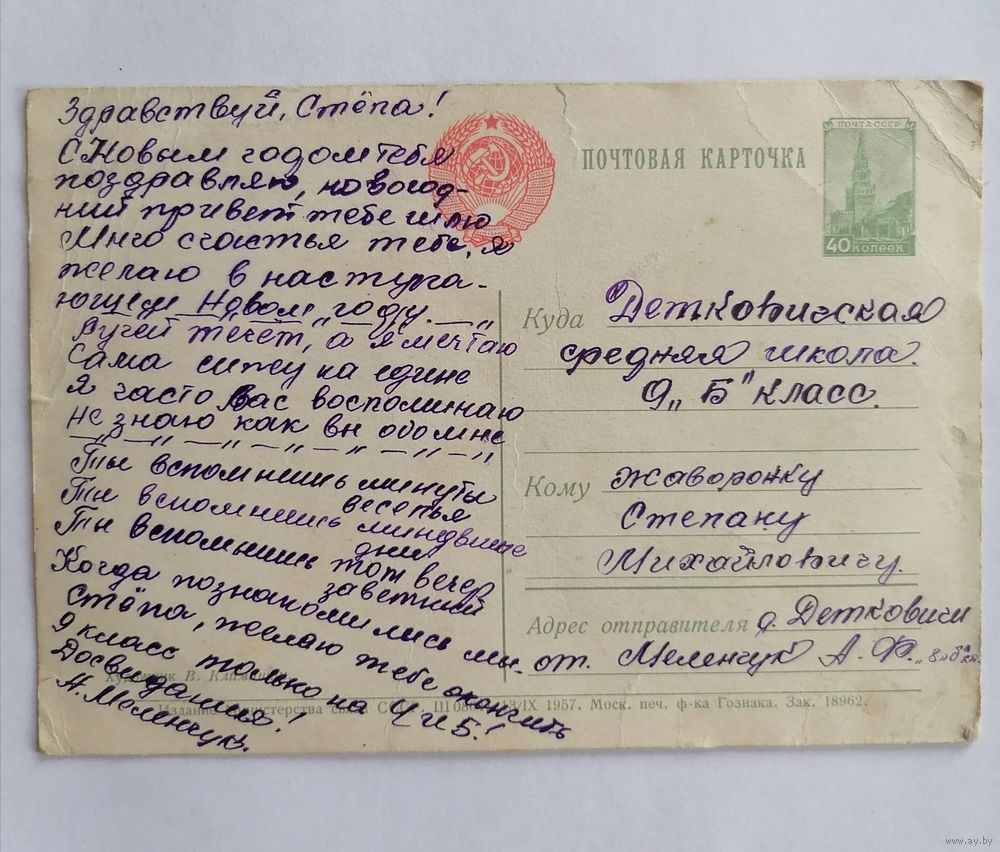 Здравствуй, Стёпа!
С Новым годом тебя
поздравляю, новогод-
ний привет тебе шлю
Мнго счастья тебе, я
желаю в наступа-
ющем Новом году.
Ручей течет, а я мечтаю
Сама сижу на едине
Я часто Вас воспоминаю
не знаю как вы обо мне
Ты вспомнишь минуты
веселья
Ты вспомнишь
дни
Ты вспомнишь тот вечер
заветный
Когда познакомились мы.
Стёпа, желаю тебе окончить
9 класс только на 4 и 5!
Досвидания!
А. Меленчук.
ПОЧТОВАЯ КАРТОЧКА
ПОЧТА СССР
40 КОПЕЕК
Куда Детковичская
средняя школа.
9 „Б" класс.
Кому Жаворонку
Степану
Михайловичу.
Адрес отправителя д. Детковичи
от. Меленчук А. Ф. „8 „б" кл.
Художник В. Климашин
Издание Министерства связи СССР. IX 1957. Моск. печ. ф-ка Гознака. Зак. 18962.
www.ay.by